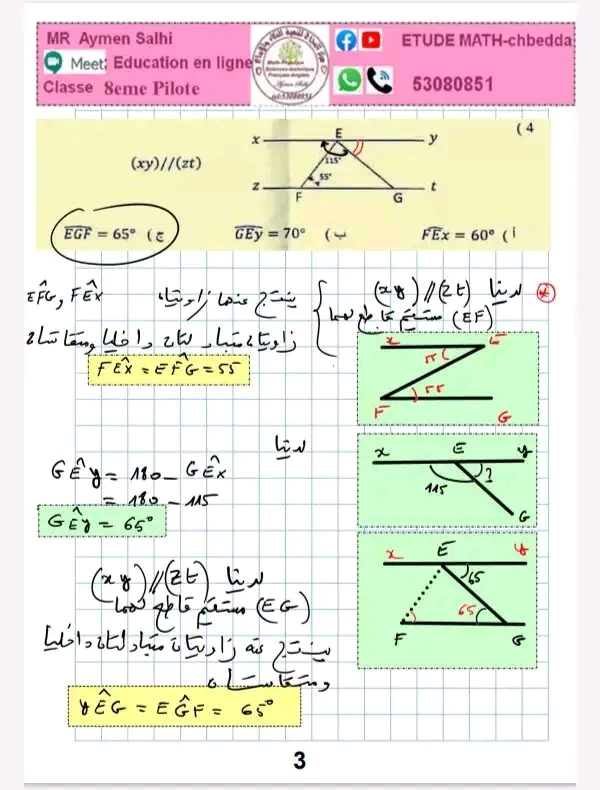 MR Aymen Salhi
Meet: Education en ligne
Classe 8eme Pilote
ETUDE MATH-chbedda
53080851
4 )
(xy)//(zt)
x E y
115°
55°
z F G t
أ ) FÊx = 60°
ب ) GÊy = 70°
ج ) EĜF = 65°
لدينا (xy) // (zt)
(EF) مستقيم قاطع لهما
ينتج عنها زاويتان FÊx و EF̂G
زاويتان متبادلتان داخليا ومتقايستان
FÊx = EF̂G = 55
x E
55
55
F G
لدينا
GÊy = 180 - GÊx
= 180 - 115
GÊy = 65°
x E y
115 ?
G
لدينا (xy) // (zt)
(EG) مستقيم قاطع لهما
ينتج عنه زاويتان متبادلتان داخليا
ومتقايستان
yÊG = EĜF = 65°
x E y
65
65
F G
3